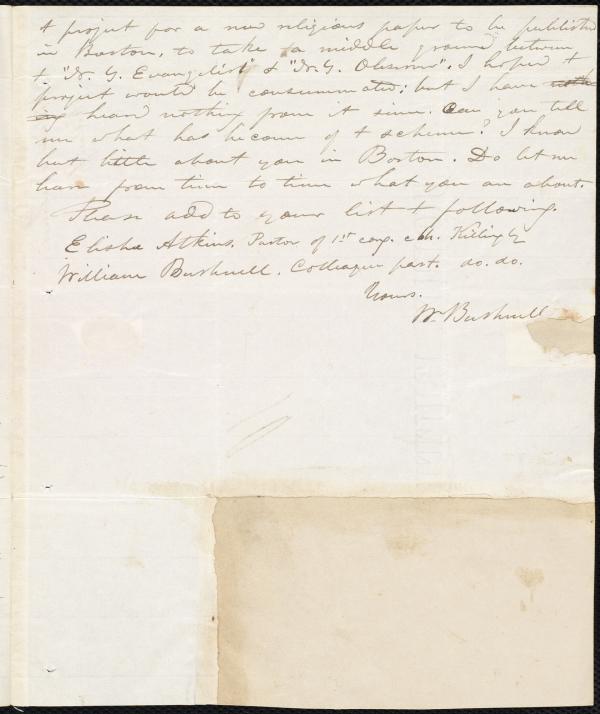 + project for a new religious paper to be published
in Boston, to take a middle ground between
+ "N. Y. Evangelist" & "N. Y. Observer". I hoped +
project would be consummated; but I have noth-
ing heard nothing from it since. Can you tell
me what has become of + scheme? I know
but little about you in Boston. Do let me
hear from time to time what you are about.
Please add to your list + following.
Elisha Atkins, Pastor of 1st cong. chh. Killingly
William Bushnell. Colleague past. do. do.
Yours.
Wm Bushnell